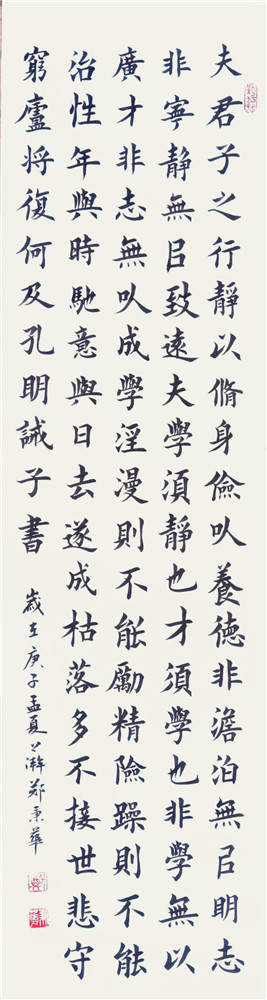 夫君子之行靜以脩身儉㕥養德非澹泊無㠯明志
非寧靜無㠯致遠夫學湏靜也才須學也非學無以
廣才非志無㕥成學淫漫則不能勵精險躁則不能
治性年與時馳意與日去遂成枯落多不接世悲守
窮廬將復何及孔明誡子書
歲在庚子孟夏上澣郑秉華